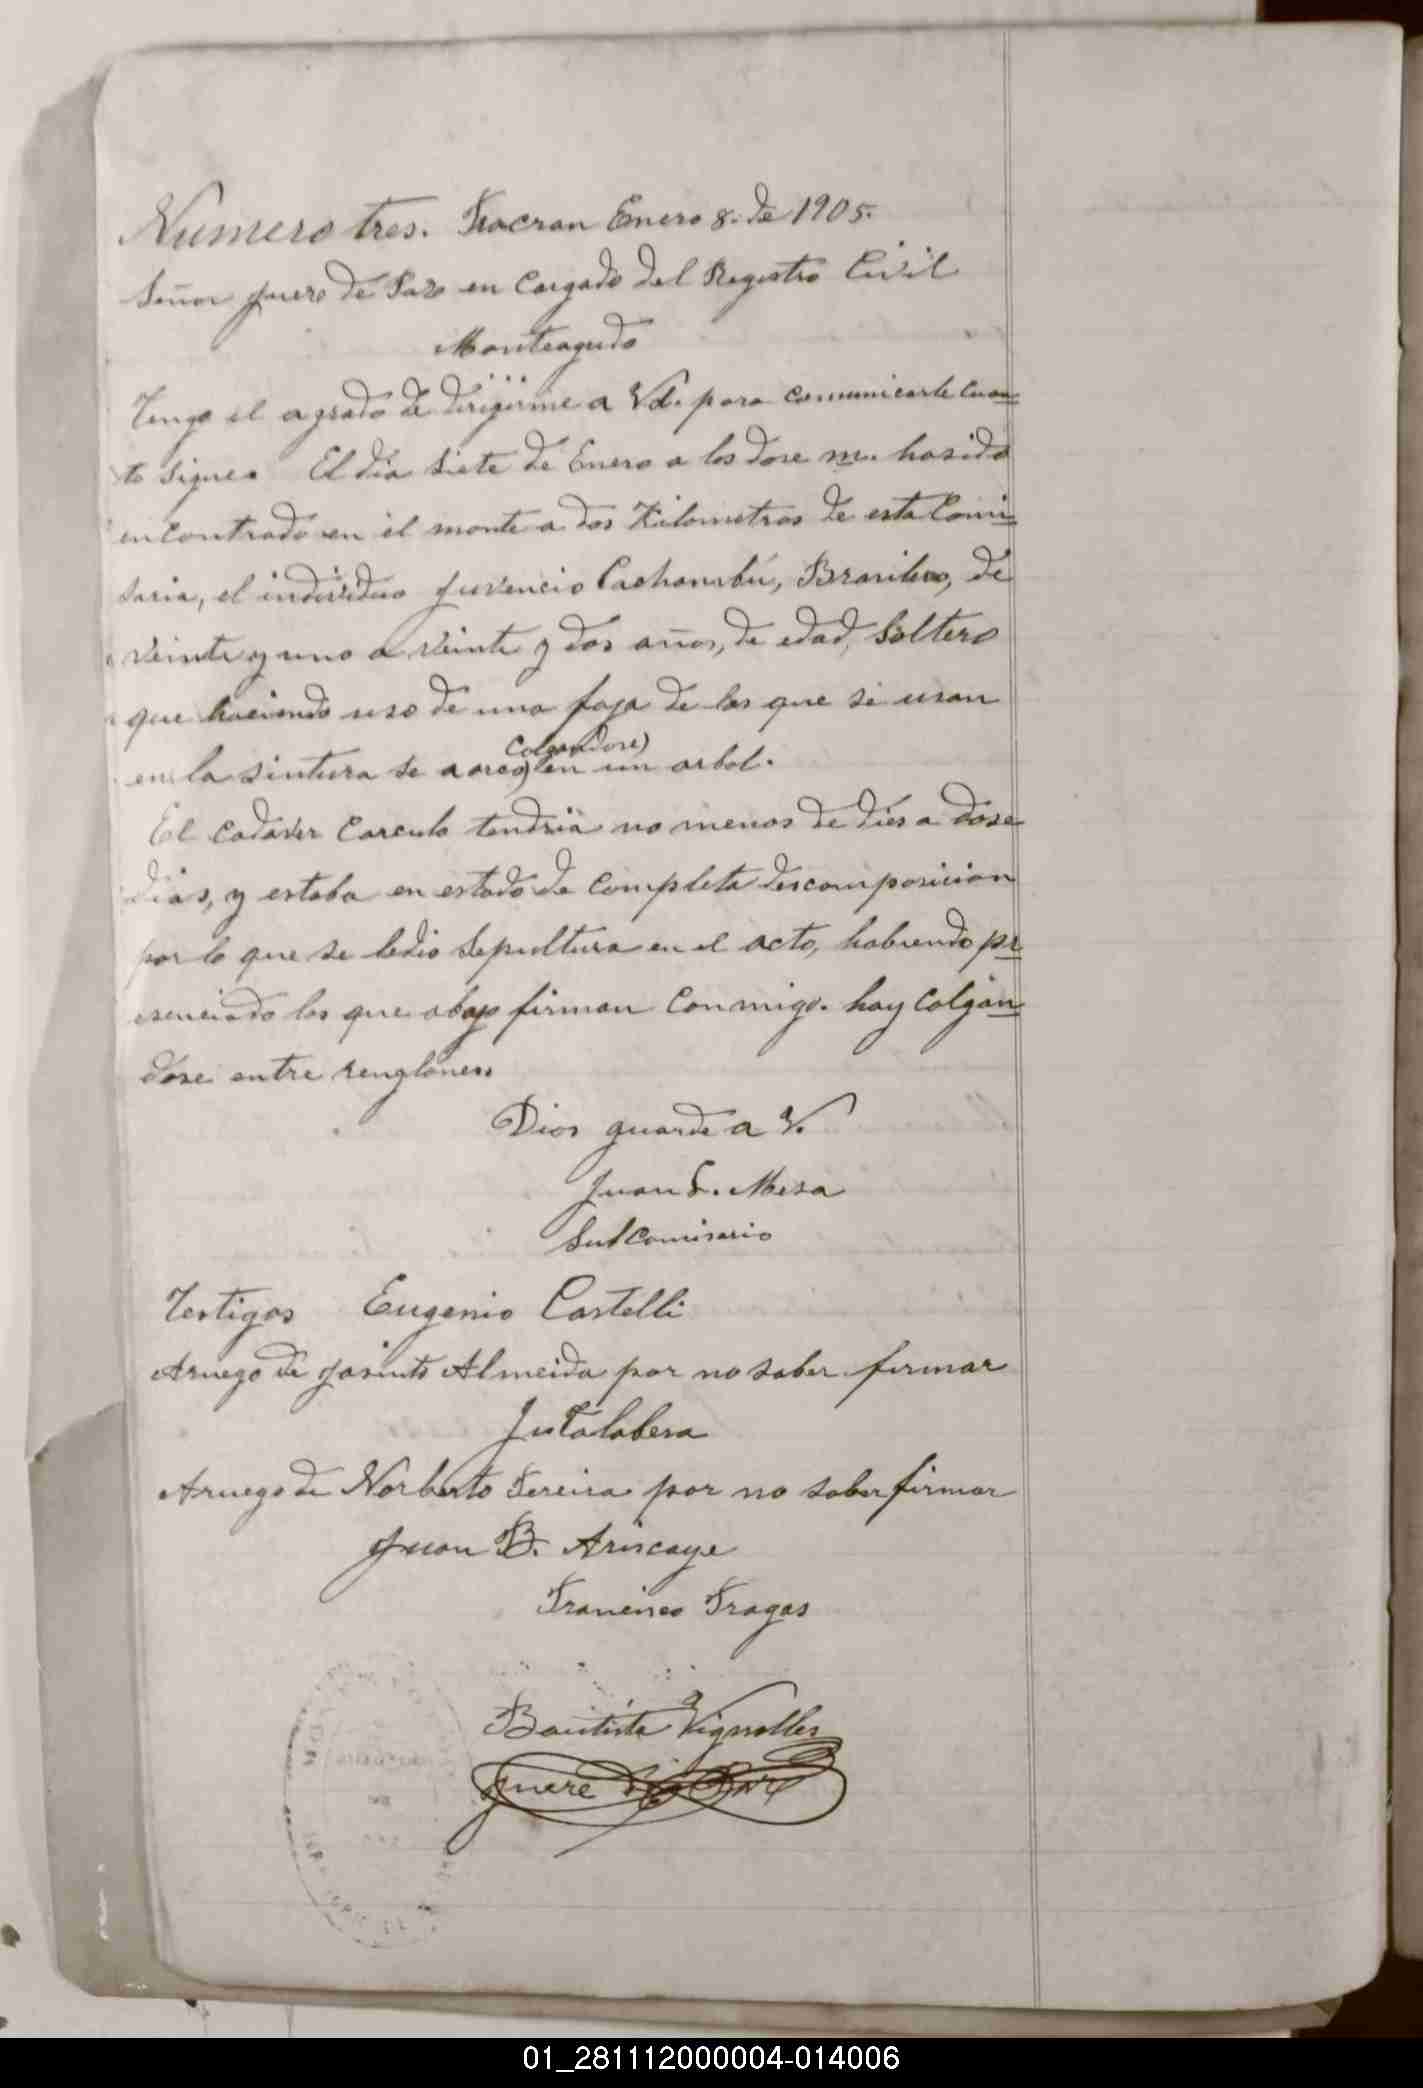 Numero tres. Fracran Enero 8. de 1905.
Señor Juez de Paz en Cargado del Registro Civil
Monteagudo
Tengo el agrado de dirigirme a Vd. para comunicarle cuan=
to sigue. El dia siete de Enero a las dose m. ha sido
encontrado en el monte a dos Kilometros de esta Comi=
saria, el individuo Juvencio Cachambú, Brasilero, de
veinte y uno a veinte y dos años, de edad, Soltero
que haciendo uso de una faja de las que se usan
Colgandose)
en la sintura se aorcó en un arbol.
El cadaver Carculo tendria no menos de dies a dose
dias, y estaba en estado de completa descomposicion
por lo que se le dio Sepultura en el acto, habiendo pr
esenciado los que abajo firman Conmigo. hay Colgan=
dose entre renglones.
Dios guarde a V.
Juan S. Mesa
SubComisario
Testigos Eugenio Castelli
Aruego de Jasinto Almeida por no saber firmar
J. Talabera
Aruego de Norberto Pereira por no saber firmar
Juan B. Ariscaye
Francisco Fragas
Bautista Vignolles
Juez de Paz
01_281112000004-014006